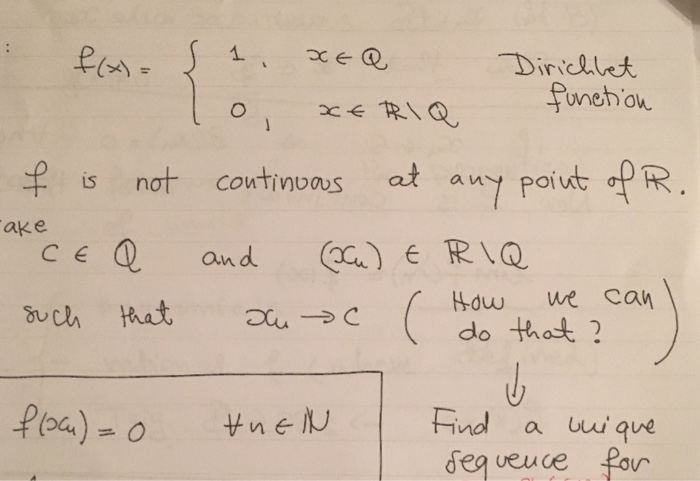 :
f(x) = { 1, x ∈ Q
0, x ∈ ℝ\Q
Dirichlet
function
f is not continuous at any point of ℝ.
ake
c ∈ Q and (xn) ∈ ℝ\Q
such that xn → c ( How we can
do that? )
⇓
f(xn) = 0 ∀n ∈ ℕ
Find a unique
sequence for